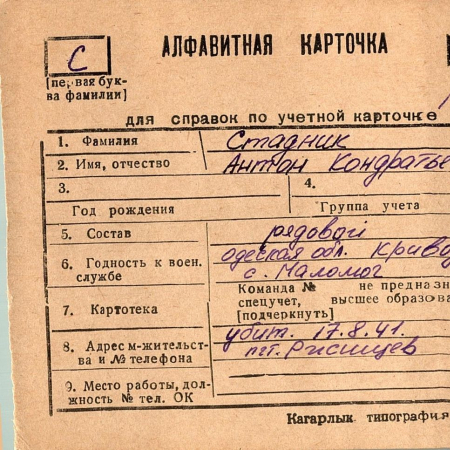 С
АЛФАВИТНАЯ КАРТОЧКА
[первая бук-
ва фамилии]
для справок по учетной карточке
1. Фамилия Стадник
2. Имя, отчество Антон Кондратье
3. 4.
Год рождения Группа учета
5. Состав рядовой
одесская обл. Криво
6. Годность к воен.
службе с. Маломог
Команда № не предназн
спецучет, высшее образова
7. Картотека [подчеркнуть]
убит. 17.8.41.
8. Адрес м-жительст-
ва и № телефона пгт. Ржищев
9. Место работы, дол-
жность № тел. ОК
Кагарлык типография